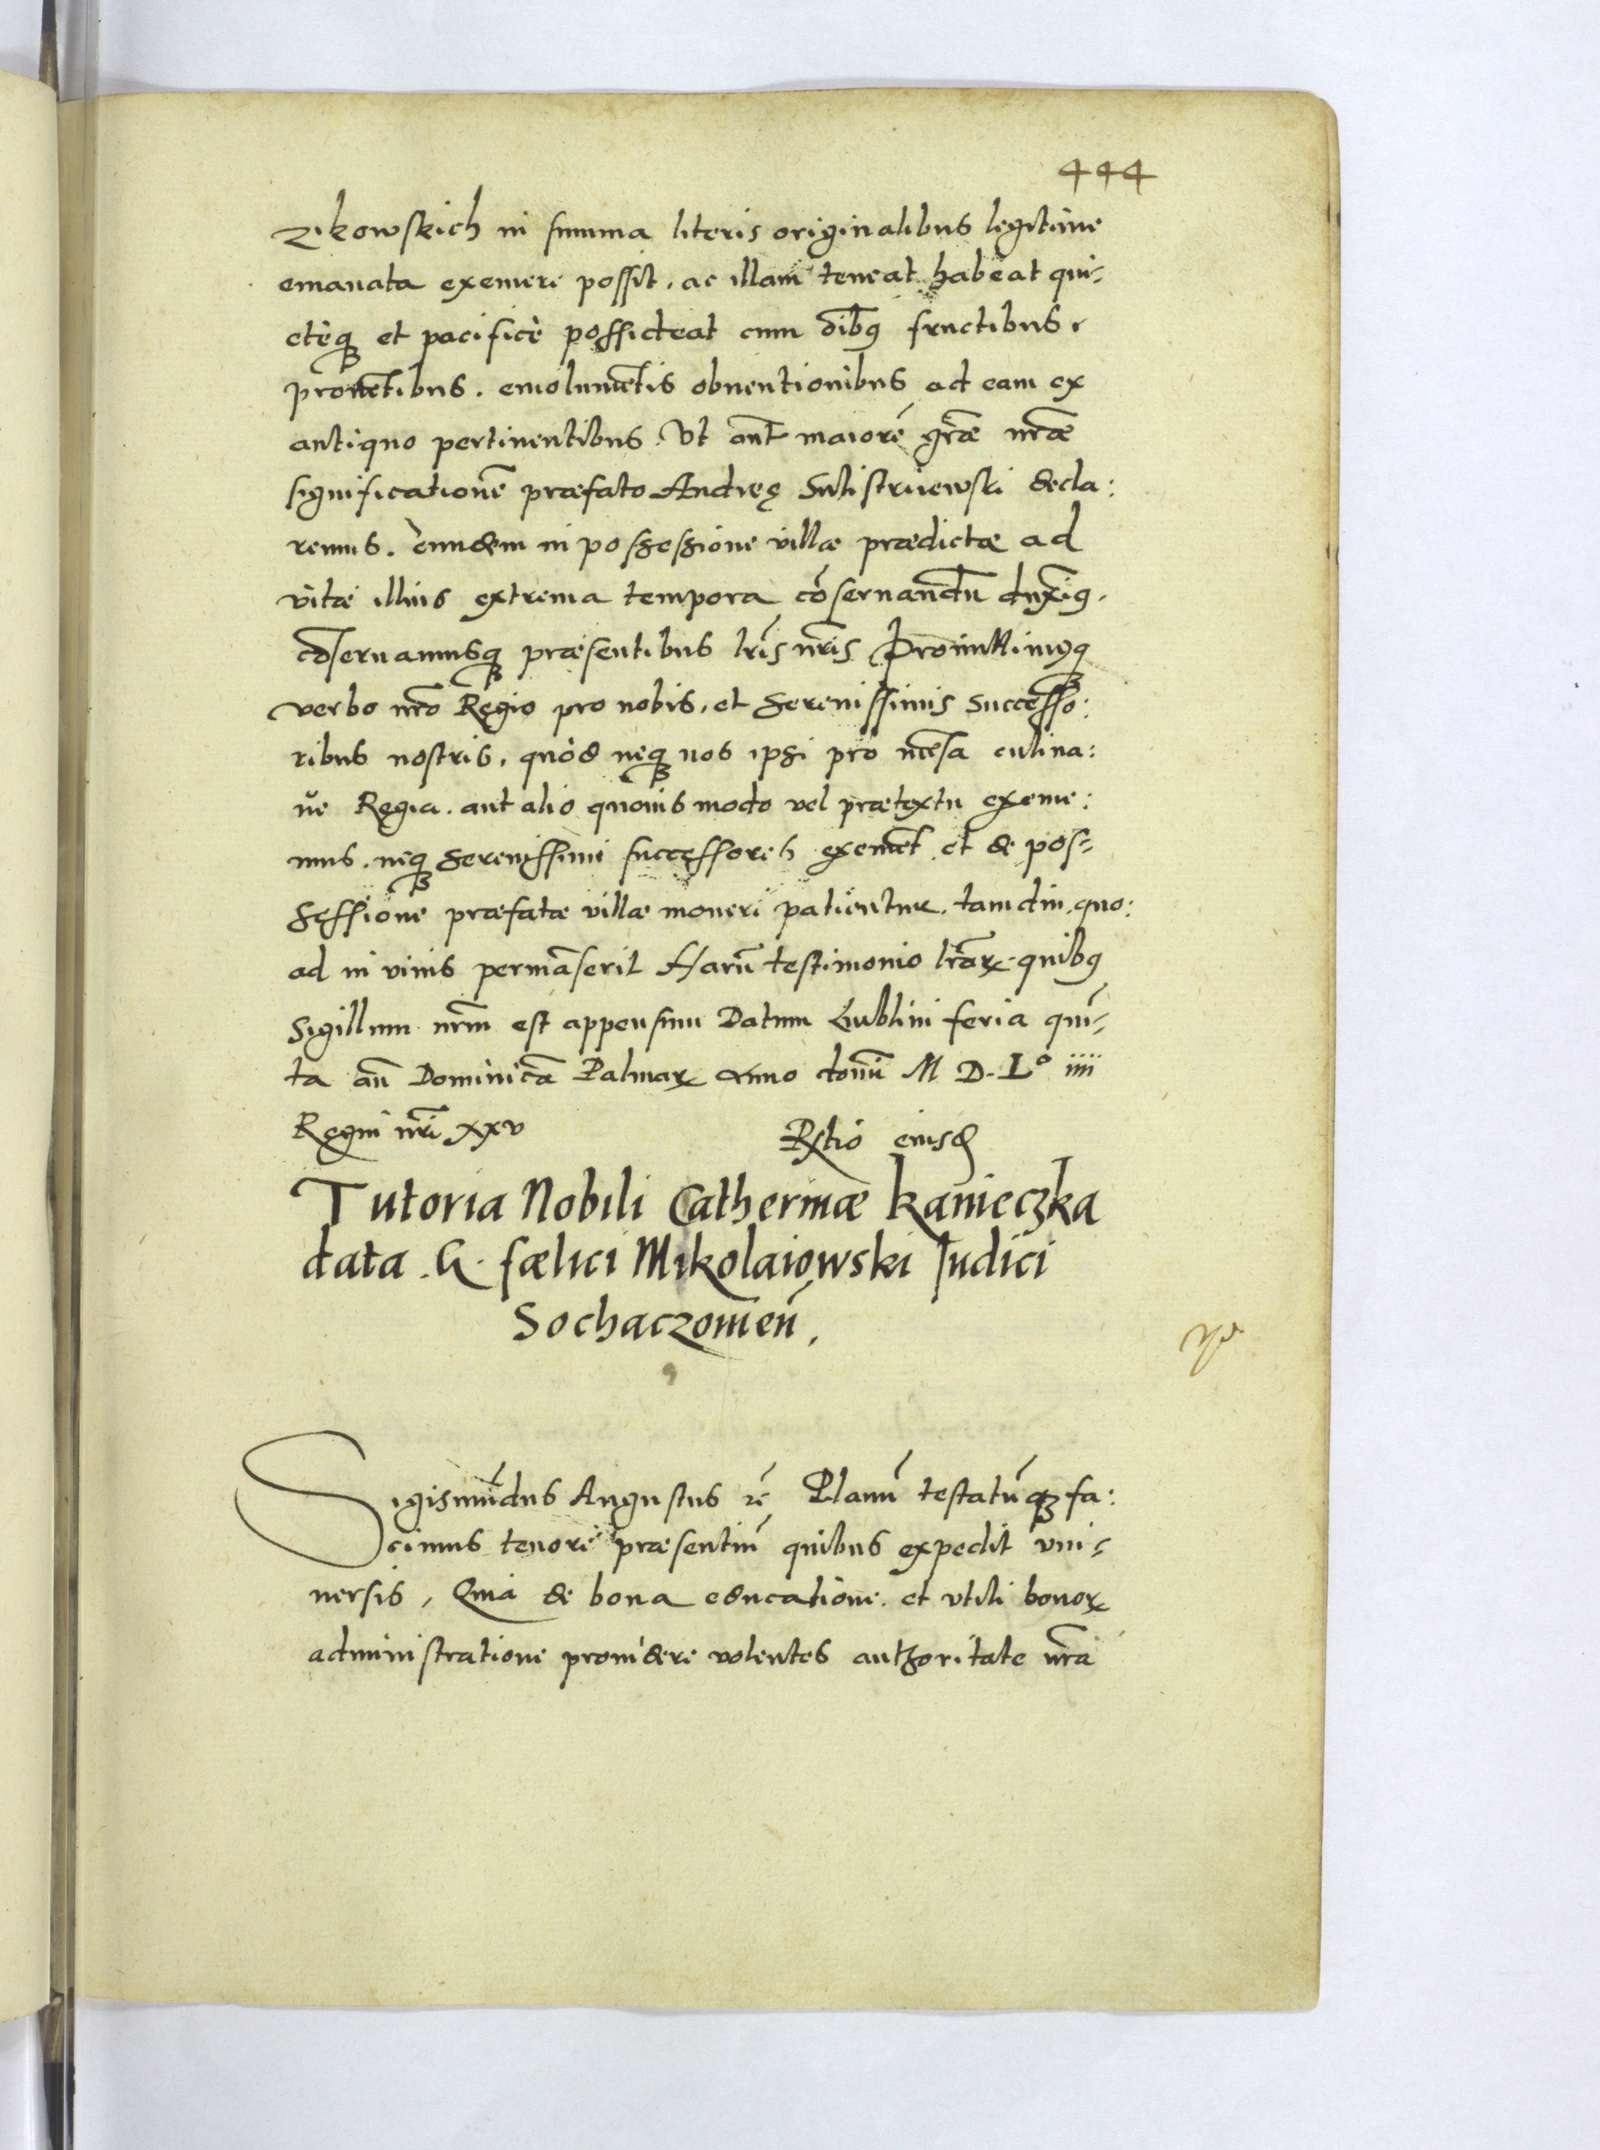 444
zikowskich in summa literis originalibus legitime
emanata exemere possit, ac illam teneat habeat qui-
eteq3 et pacifice possideat cum oĩbꝯ fructibus,
prouẽtibus, emolumẽtis obuentionibus ad eam ex
antiquo pertinentibus. Vt aũt maiorẽ grãæ nrãæ
significationẽ præfato Andreę Sulistriewski decla:
remus. eundem in possessione villæ prædictæ ad
vitæ illius extrema tempora cõseruandũ duximꝯ,
cõseruamusq3 præsentibus lrĩs nrĩs Promittimꝯq3
verbo nrõ Regio pro nobis, et serenissimis successo:
ribus nostris, quod neq3 nos ipsi pro mẽsa culina:
ue Regia, aut alio quouis modo vel prætextu exeme:
mus, neq3 serenissimi successores exemẽt et de pos-
sessione præfatæ villæ moueri patientur, tamdiu, quo:
ad in viuis permãserit Harũ testimonio lrãꝝ quibꝯ
Sigillum nrm̃ est appensum Datum Lublini feria quĩ-
ta añ Dominicã Palmaꝝ Anno domĩ M D. Lº iiii
Regni nrĩ xxv Rltio eiusd
Tutoria Nobili Catherinæ Kanieczka
data .G. fælici Mikolaiowski Iudici
Sochaczouien̄.
Sigismũdus Augustus rẽ Planũ testatũq3 fa:
cimus tenore præsentiũ quibus expedit vni-
uersis, Quia de bona educatione et vtili bonoꝝ
administratione prouidere volentes authoritate nrã